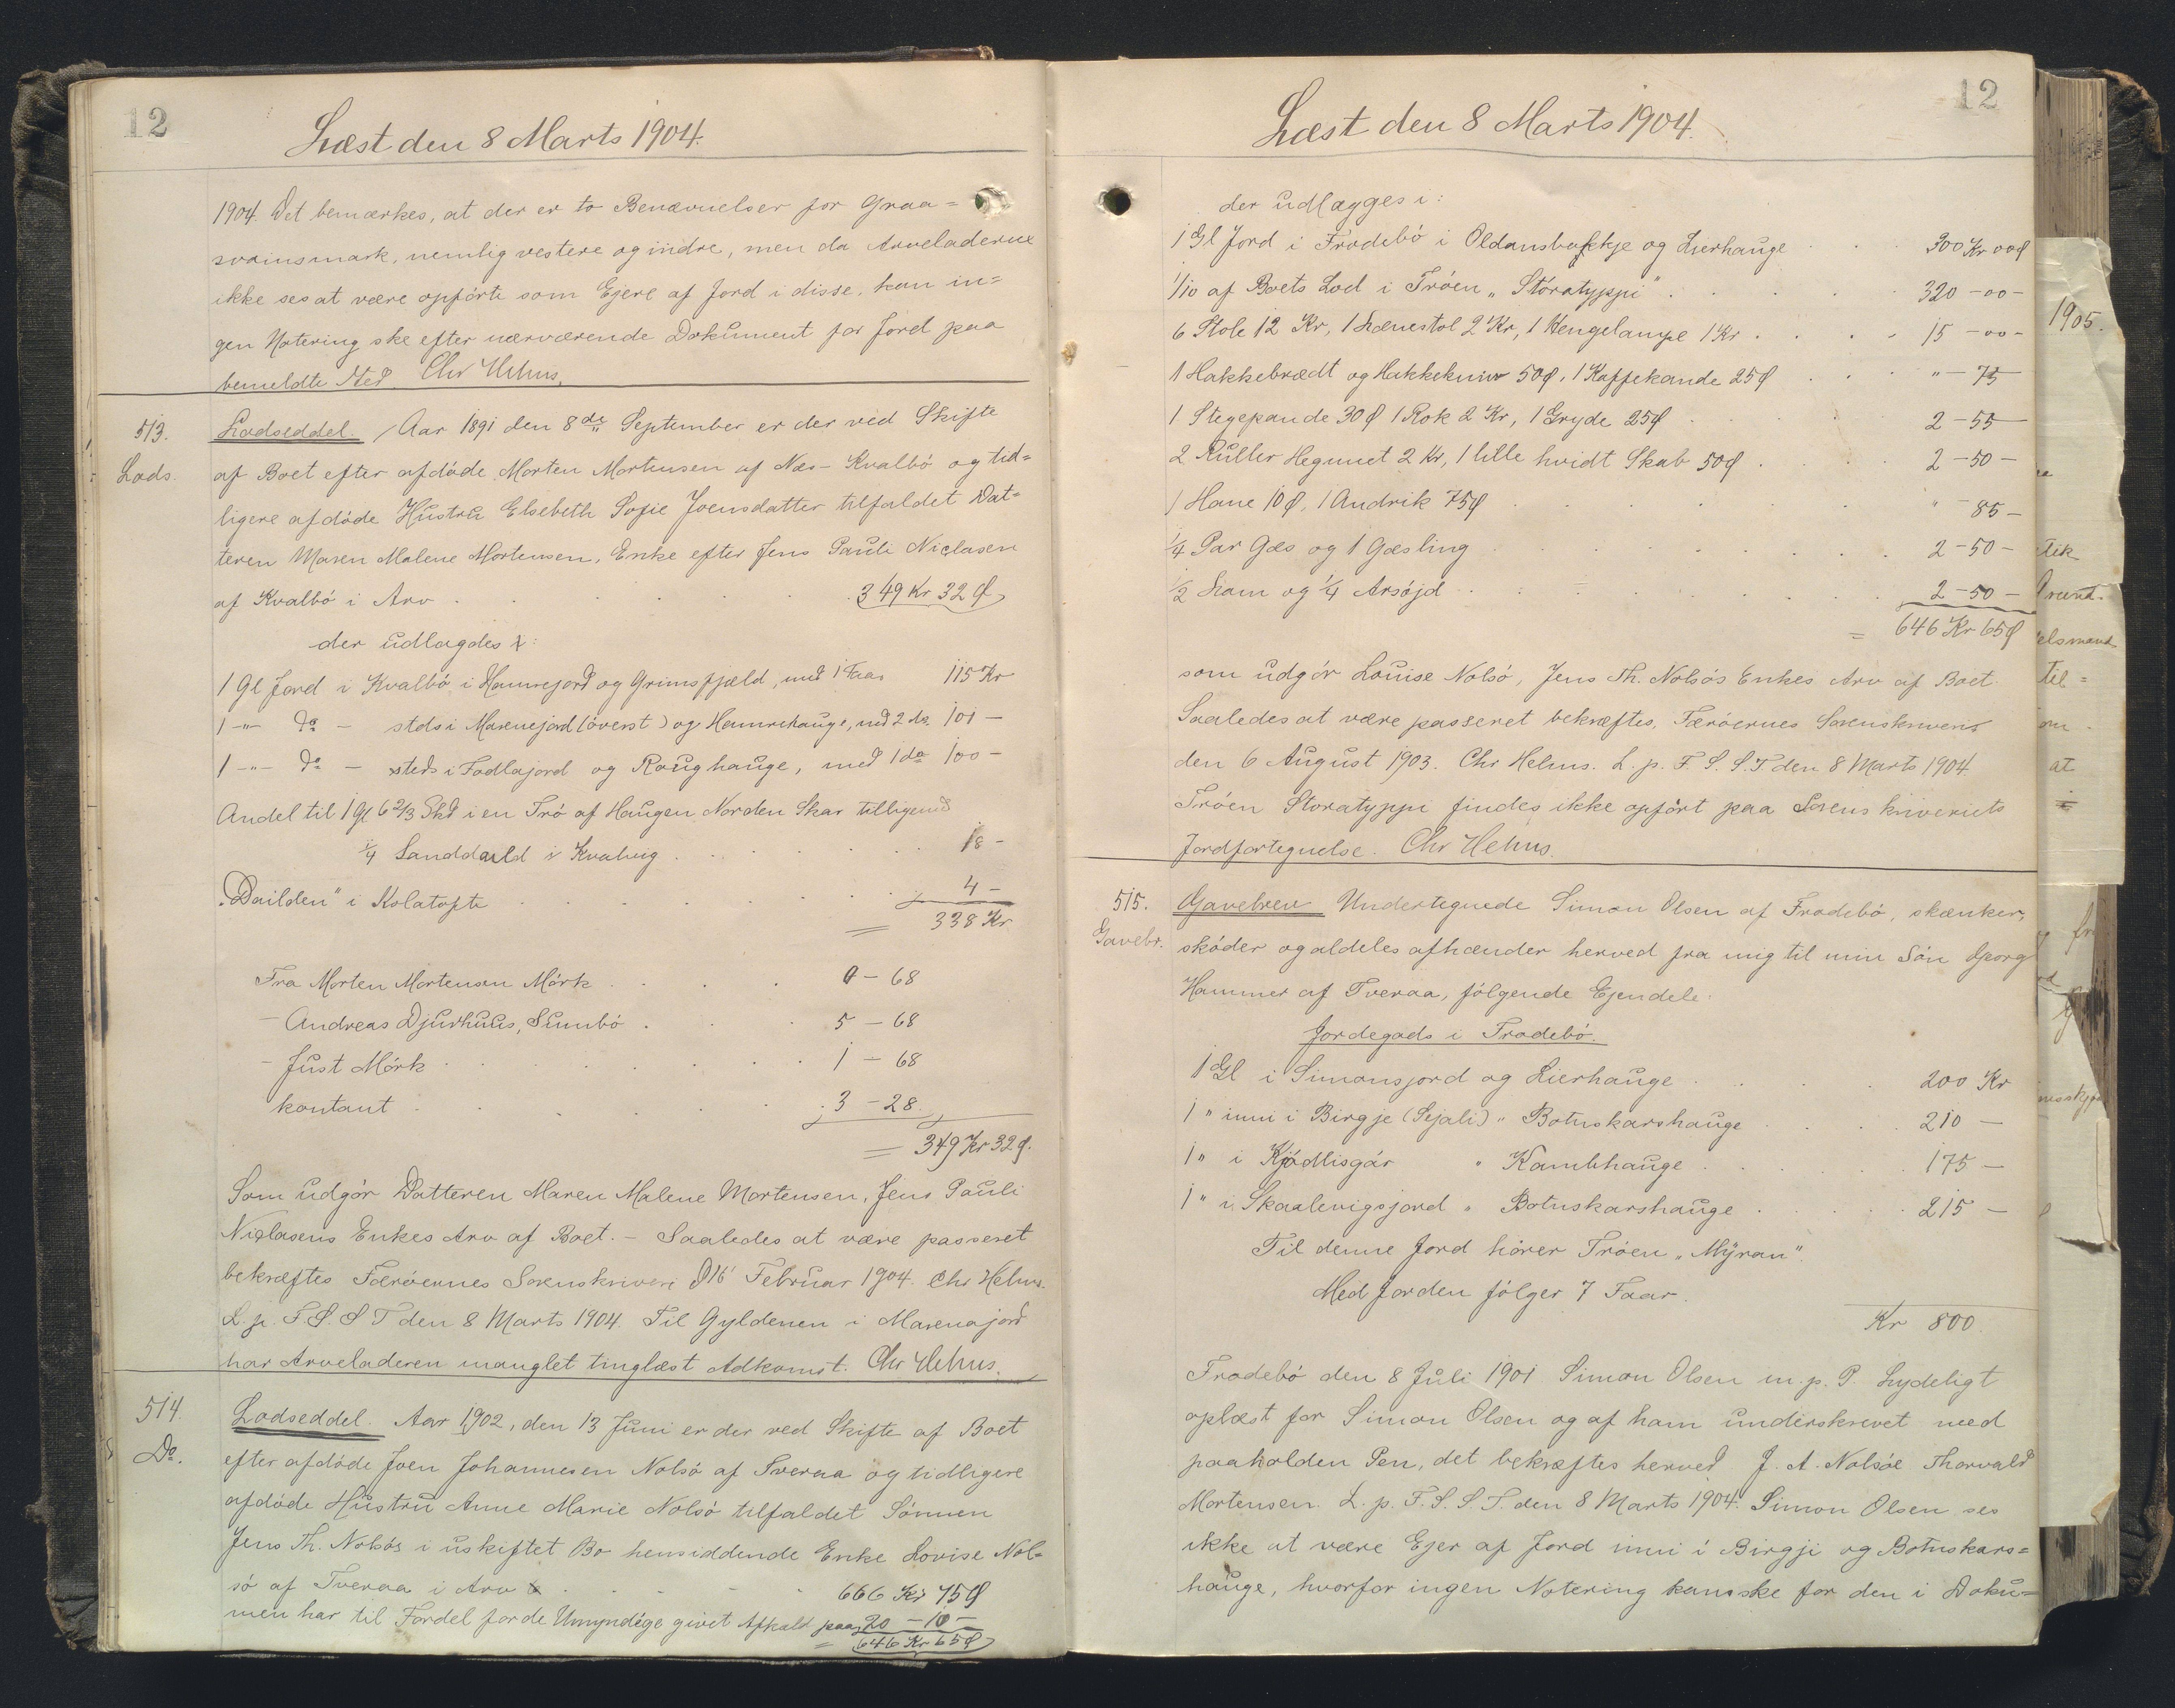 12
Læst den 8 Marts 1904.
1904. Det bemærkes, at der er to Benævnelser for Graa=
svainsmark, nemlig vestere og indre, men da Arveladerne
ikke ses at være opførte som Ejere af Jord i disse, kan in=
gen Notering ske efter nærværende Dokument for Jord paa
bemeldte Sted. Chr Helms.
513.
Lods.
Lodseddel. Aar 1891 den 8de September er der ved Skifte
af Boet efter afdøde Morten Mortensen af Næs-Kvalbø og tid=
ligere afdøde Hustru Elsebeth Sofie Joensdatter tilfaldet Dat=
teren Maren Malene Mortensen, Enke efter Jens Pauli Niclasen
af Kvalbø i Arv . . . . . 349 Kr 32 Ø
der udlagdes :
1 Gl Jord i Kvalbø i Hamrejord og Grimsfjæld, med 1 Faar 115 Kr
1 -"- Do - steds i Marenejord (øverst) og Hamrehauge, med 2 do. 101 -
1 -"- Do - steds i Fodlajord og Roughauge, med 1 do 100 -
Andel til 1 Gl 6 2/3 Skd i en Trø af Haugen Norden Skar tilligemed
1/4 Sanddeild i Kvalvig . . . . . 18 -
"Deilden" i Kolatofte . . . . . 4 -
= 338 Kr
Fra Morten Mortensen Mørk . . . 0 - 68
- Andreas Djurhuus, Sumbø . . 5 - 68
- Just Mørk . . . . . 1 - 68
kontant . . . . . 3 - 28
= 349 Kr 32 Ø.
Som udgør Datteren Maren Malene Mortensen, Jens Pauli
Niclasens Enkes Arv af Boet. - Saaledes at være passeret
bekræftes Færøernes Sorenskriveri D 16 Februar 1904. Chr Helms.
L. p. F. S. S T den 8 Marts 1904. Til Gyldenen i Marenajord
har Arveladeren manglet tinglæst Adkomst. Chr Helms.
514.
Do.
Lodseddel. Aar 1902, den 13 Juni er der ved Skifte af Boet
efter afdøde Joen Johannesen Nolsø af Tveraa og tidligere
afdøde Hustru Anne Marie Nolsø tilfaldet Sønnen
Jens Th. Nolsøs i uskiftet Bo hensiddende Enke Lovise Nol=
sø af Tveraa i Arv . . . . 666 Kr 75 Ø
men har til Fordel for de Umyndige givet Afkald paa 20 - 10 -
= 646 Kr 65 Ø
12
Læst den 8 Marts 1904.
der udlægges i:
1 Gl Jord i Frodebø i Oldansbakkje og Lierhauge . . . 300 Kr 00 Ø
1/10 af Boets Lod i Trøen "Störatyppi" . . . . 320 - 00 -
6 Stole 12 Kr, 1 Lænestol 2 Kr, 1 Hengelampe 1 Kr . . . . 15 - 00 -
1 Hakkebrædt og Hakkekniv 50 Ø, 1 Kaffekande 25 Ø . . . " - 75
1 Stegepande 30 Ø 1 Rok 2 Kr, 1 Gryde 25 Ø . . . . 2 - 55
2 Ruller Hegnnet 2 Kr, 1 lille hvidt Skab 50 Ø . . . . 2 - 50 -
1 Hane 10 Ø, 1 Andrik 75 Ø . . . . . " - 85 -
1/4 Par Gæs og 1 Gæsling . . . . . 2 - 50 -
1/2 Lam og 1/4 Arsøjd . . . . . 2 - 50 -
= 646 Kr 65 Ø
som udgør Louise Nolsø, Jens Th. Nolsøs Enkes Arv af Boet.
Saaledes at være passeret bekræftes. Færøernes Sorenskriveri
den 6 August 1903. Chr Helms. L. p. F. S. S. T den 8 Marts 1904
Trøen Storatyppi findes ikke opført paa Sorenskriveriets
Jordfortegnelse. Chr Helms.
515.
Gavebr.
Gavebrev Undertegnede Simon Olsen af Frodebø, skænker,
skøder og aldeles afhænder herved fra mig til min Søn Georg
Hammer af Tveraa, følgende Ejendele:
Jordegods i Frodebø.
1 Gl i Simonsjord og Lierhauge . . . . 200 Kr
1 " inni i Birgje (Sejali) " Botnskarshauge . . . . 210 -
1 " i Kjødlisgár " Kambhauge . . . . . 175 -
1 " i Skaalevigsjord " Botnskarshauge . . . . . 215 -
Til denne Jord hører Trøen "Mÿran".
Med Jorden følger 7 Faar.
Kr 800
Frodebø den 8 Juli 1901 Simon Olsen m. p. P. Lydeligt
oplæst for Simon Olsen og af ham underskrevet med
paaholden Pen, det bekræftes herved J. A. Nolsøe Thorvald
Mortensen. L. p. F. S. S. T. den 8 Marts 1904. Simon Olsen ses
ikke at være Ejer af Jord inni i Birgji og Botnskars=
hauge, hvorfor ingen Notering kan ske for den i Doku=
1905.